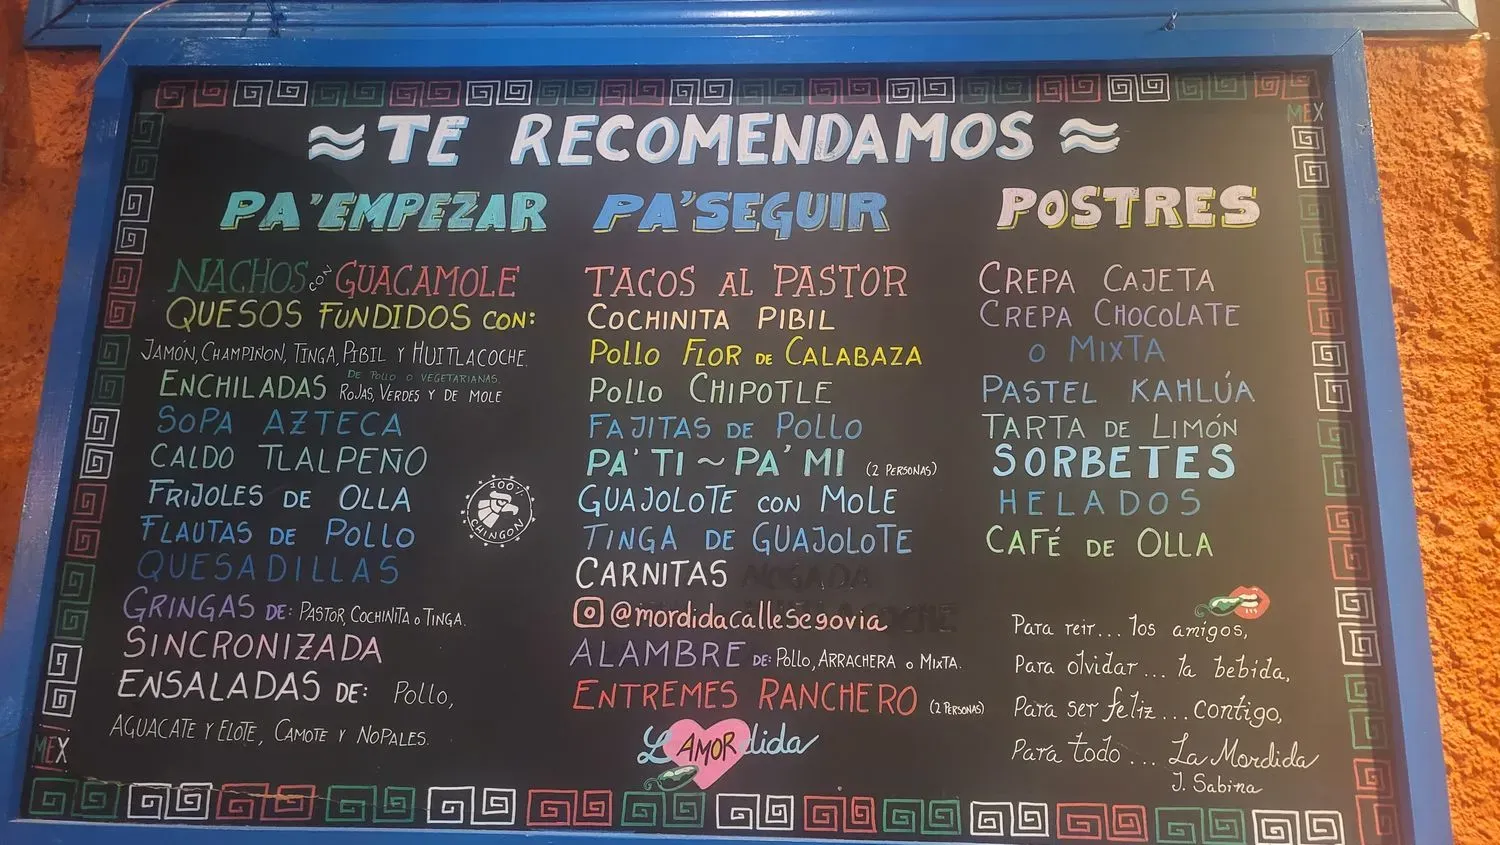 ≈ TE RECOMENDAMOS ≈
PA'EMPEZAR
NACHOS CON GUACAMOLE
QUESOS FUNDIDOS CON:
JAMÓN, CHAMPIÑON, TINGA, PIBIL Y HUITLACOCHE.
DE POLLO O VEGETARIANAS.
ENCHILADAS ROJAS, VERDES Y DE MOLE
SOPA AZTECA
CALDO TLALPEÑO
FRIJOLES DE OLLA
FLAUTAS DE POLLO
QUESADILLAS
GRINGAS DE: PASTOR, COCHINITA O TINGA.
SINCRONIZADA
ENSALADAS DE: POLLO,
AGUACATE Y ELOTE, CAMOTE Y NOPALES.
100% CHINGON
PA'SEGUIR
TACOS AL PASTOR
COCHINITA PIBIL
POLLO FLOR DE CALABAZA
POLLO CHIPOTLE
FAJITAS DE POLLO
PA' TI ~ PA' MI (2 PERSONAS)
GUAJOLOTE CON MOLE
TINGA DE GUAJOLOTE
CARNITAS NOGADA
@mordidacalleSegovia
ALAMBRE DE: POLLO, ARRACHERA O MIXTA.
ENTREMES RANCHERO (2 PERSONAS)
AMOR
POSTRES
CREPA CAJETA
CREPA CHOCOLATE
O MIXTA
PASTEL KAHLÚA
TARTA DE LIMÓN
SORBETES
HELADOS
CAFÉ DE OLLA
Para reir... los amigos,
Para olvidar... la bebida,
Para ser feliz... contigo,
Para todo... La Mordida
J. Sabina
MEX
MEX